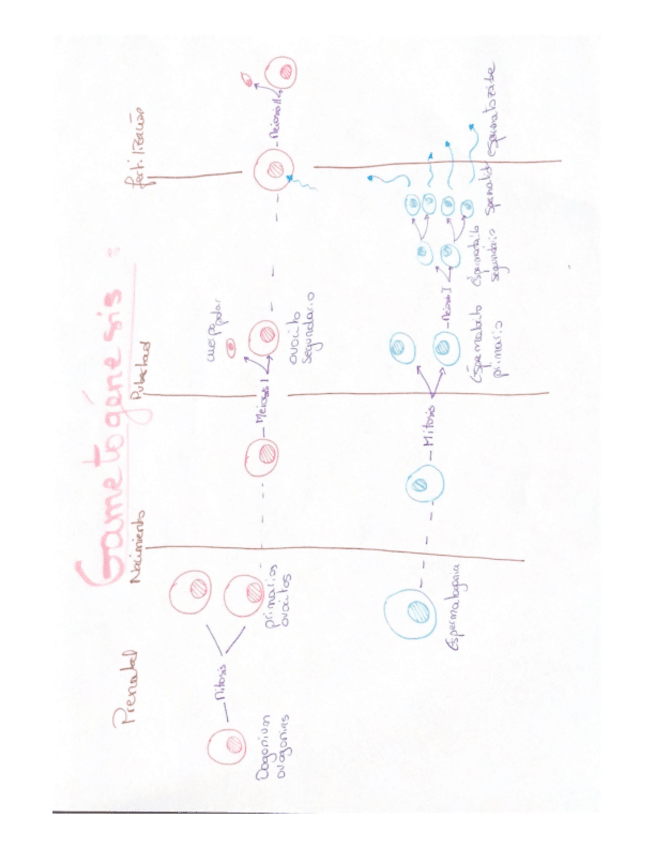 Gametogénesis:
Prenatal
Nacimiento
Pubertad
fertilización
Mitosis
Oogonium
ovogonias
primarios
ovocitos
Meiosis I
cuerpo polar
ovocito
segundario
Meiosis II
Espermatogonia
Mitosis
Espermatocito
primario
Meiosis I
Espermatocito
segundario
Espermatozoide